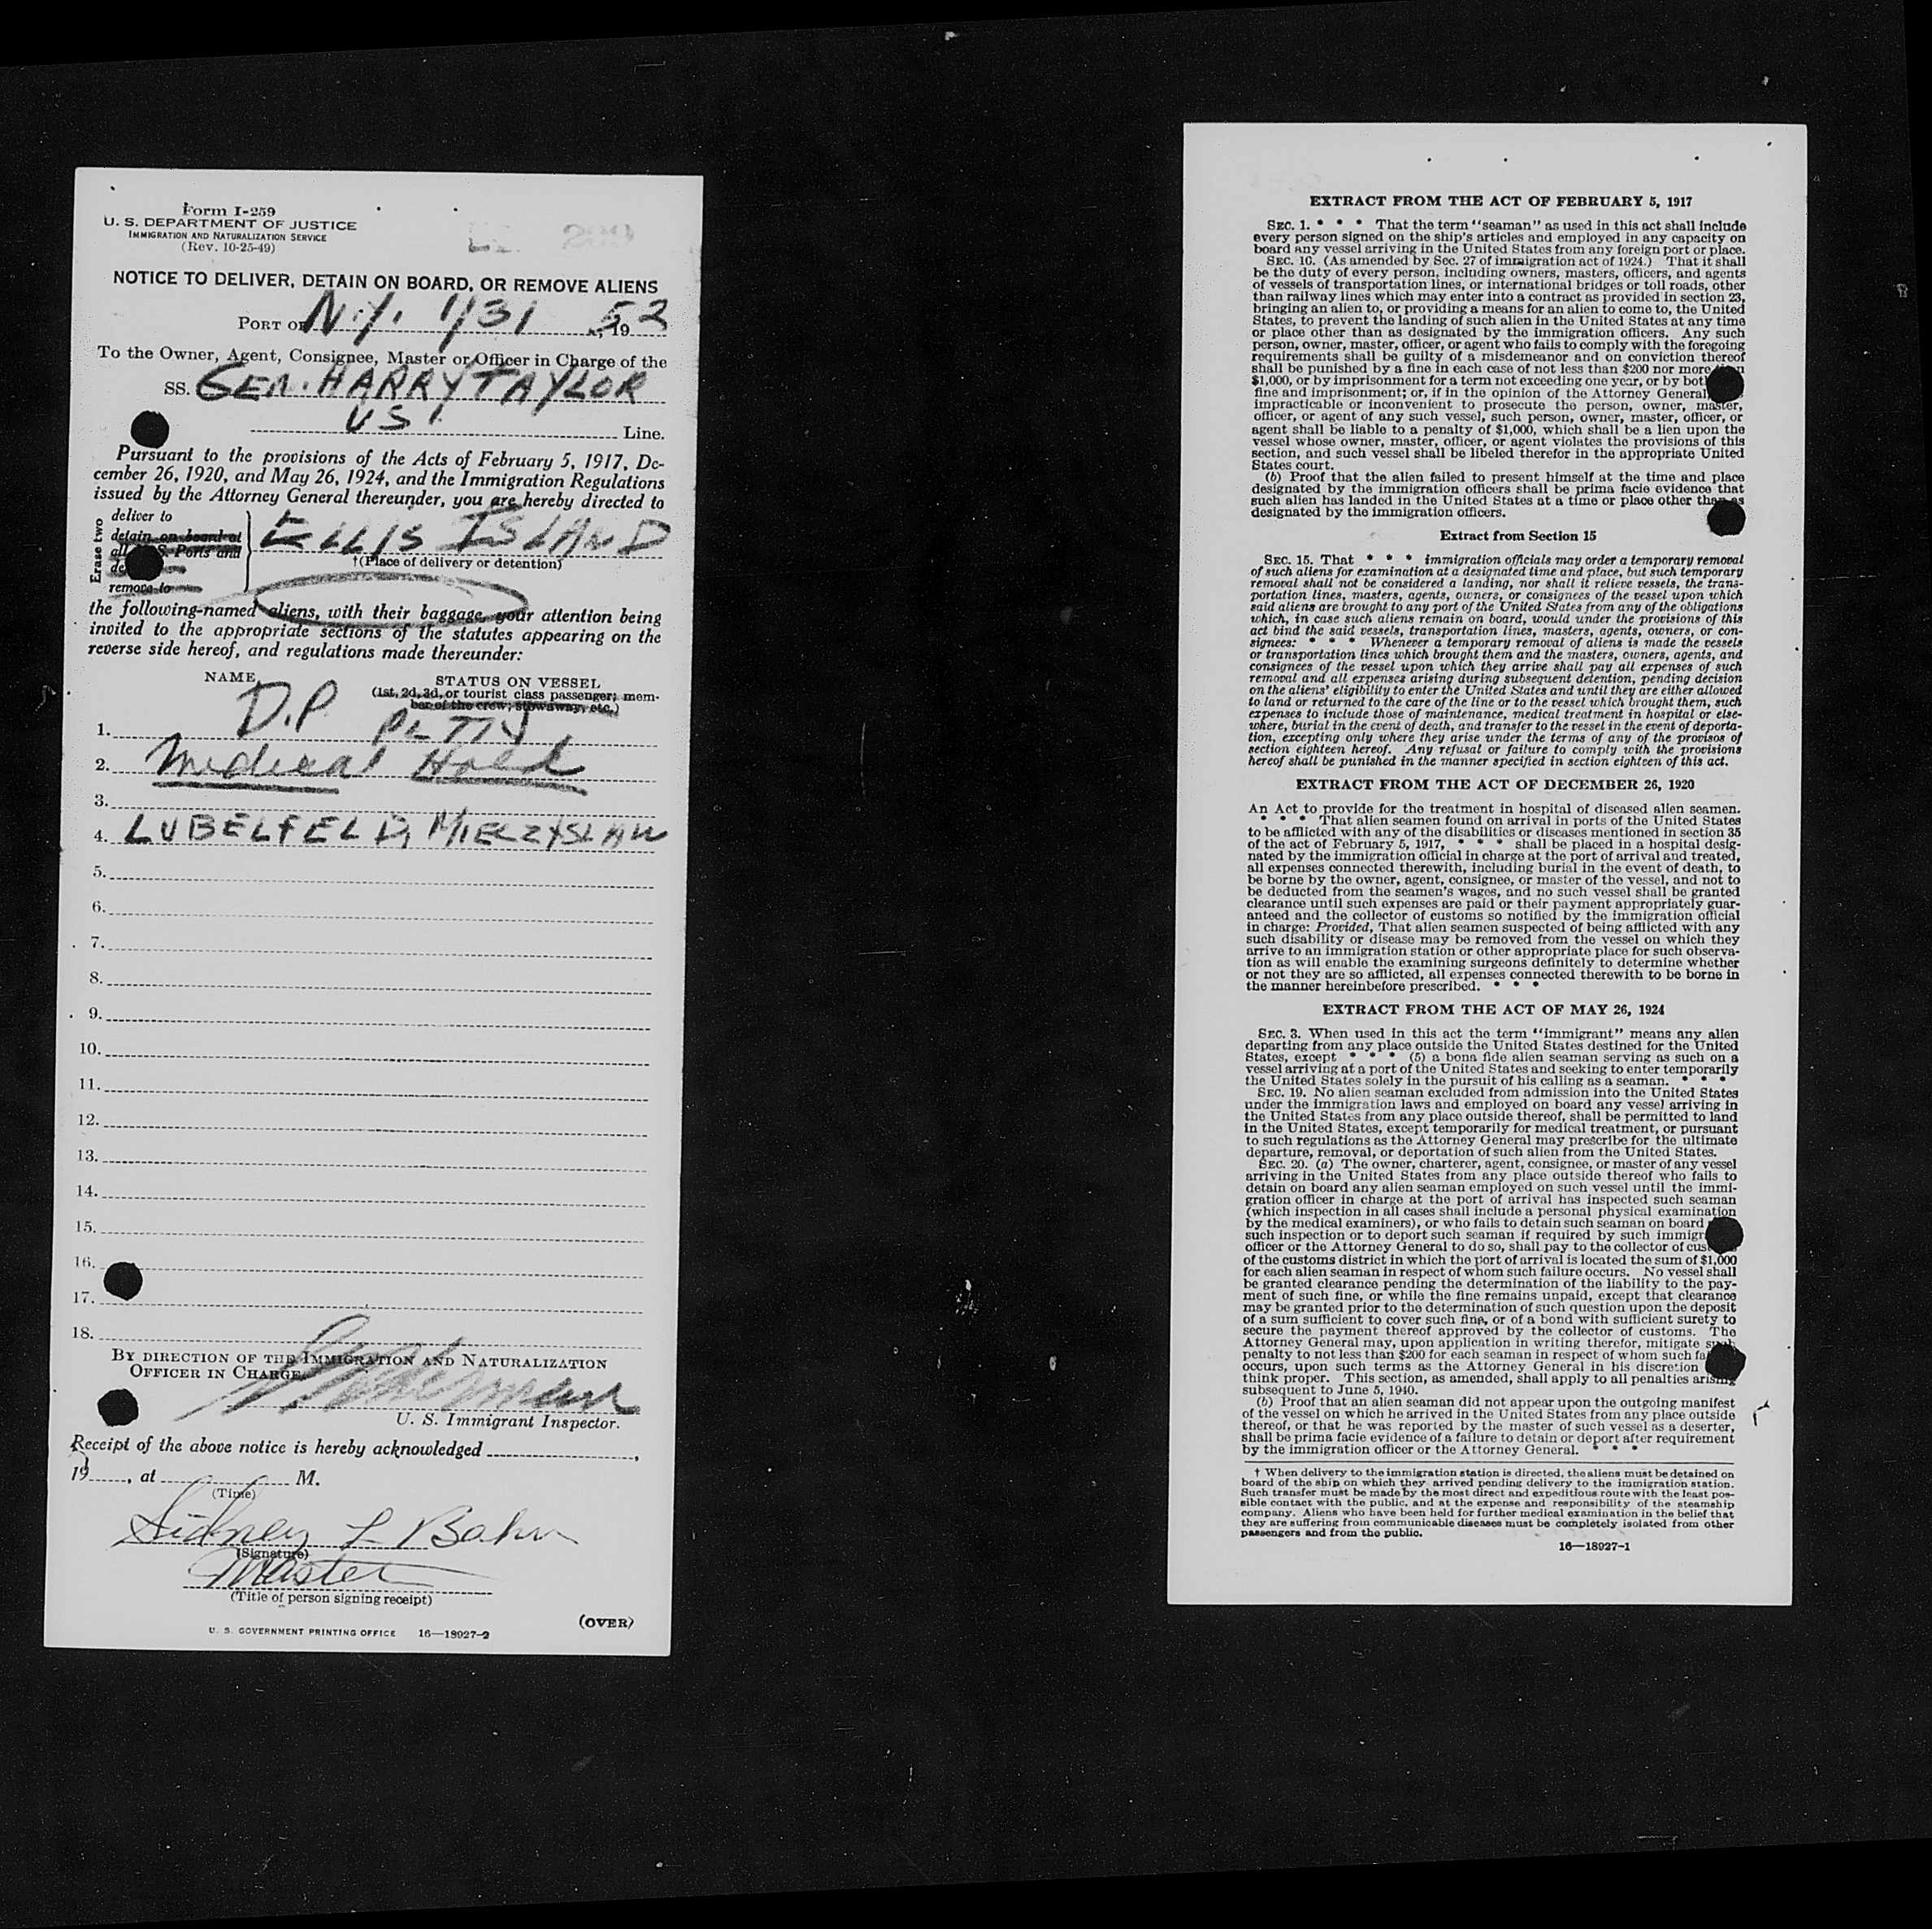 Form I-259
U. S. DEPARTMENT OF JUSTICE
IMMIGRATION AND NATURALIZATION SERVICE
(Rev. 10-25-49)
NOTICE TO DELIVER, DETAIN ON BOARD, OR REMOVE ALIENS
PORT OF N.Y. 1/31, 1952
To the Owner, Agent, Consignee, Master or Officer in Charge of the
SS. GEN. HARRY TAYLOR
US Line.
Pursuant to the provisions of the Acts of February 5, 1917, De-
cember 26, 1920, and May 26, 1924, and the Immigration Regulations
issued by the Attorney General thereunder, you are hereby directed to
Erase two
deliver to
detain on board at
all U. S. Ports and
remove to
ELLIS ISLAND
†(Place of delivery or detention)
the following-named aliens, with their baggage, your attention being
invited to the appropriate sections of the statutes appearing on the
reverse side hereof, and regulations made thereunder:
NAME STATUS ON VESSEL
(1st, 2d, 3d, or tourist class passenger; mem-
ber of the crew; stowaway, etc.)
D.P.
1.
2. Medical Hold
3.
4. LUBELFELD, MIECZYSLAW
5.
6.
7.
8.
9.
10.
11.
12.
13.
14.
15.
16.
17.
18.
BY DIRECTION OF THE IMMIGRATION AND NATURALIZATION
OFFICER IN CHARGE
U. S. Immigrant Inspector.
Receipt of the above notice is hereby acknowledged ,
19 , at M.
(Time)
Sidney L Bahn
(Signature)
Master
(Title of person signing receipt)
(OVER)
U. S. GOVERNMENT PRINTING OFFICE 16—18927-2
EXTRACT FROM THE ACT OF FEBRUARY 5, 1917
SEC. 1. * * * That the term "seaman" as used in this act shall include
every person signed on the ship's articles and employed in any capacity on
board any vessel arriving in the United States from any foreign port or place.
SEC. 10. (As amended by Sec. 27 of immigration act of 1924.) That it shall
be the duty of every person, including owners, masters, officers, and agents
of vessels of transportation lines, or international bridges or toll roads, other
than railway lines which may enter into a contract as provided in section 23,
bringing an alien to, or providing a means for an alien to come to, the United
States, to prevent the landing of such alien in the United States at any time
or place other than as designated by the immigration officers. Any such
person, owner, master, officer, or agent who fails to comply with the foregoing
requirements shall be guilty of a misdemeanor and on conviction thereof
shall be punished by a fine in each case of not less than $200 nor more than
$1,000, or by imprisonment for a term not exceeding one year, or by both
fine and imprisonment; or, if in the opinion of the Attorney General
impracticable or inconvenient to prosecute the person, owner, master,
officer, or agent of any such vessel, such person, owner, master, officer, or
agent shall be liable to a penalty of $1,000, which shall be a lien upon the
vessel whose owner, master, officer, or agent violates the provisions of this
section, and such vessel shall be libeled therefor in the appropriate United
States court.
(b) Proof that the alien failed to present himself at the time and place
designated by the immigration officers shall be prima facie evidence that
such alien has landed in the United States at a time or place other than as
designated by the immigration officers.
Extract from Section 15
SEC. 15. That * * * immigration officials may order a temporary removal
of such aliens for examination at a designated time and place, but such temporary
removal shall not be considered a landing, nor shall it relieve vessels, the trans-
portation lines, masters, agents, owners, or consignees of the vessel upon which
said aliens are brought to any port of the United States from any of the obligations
which, in case such aliens remain on board, would under the provisions of this
act bind the said vessels, transportation lines, masters, agents, owners, or con-
signees: * * * Whenever a temporary removal of aliens is made the vessels
or transportation lines which brought them and the masters, owners, agents, and
consignees of the vessel upon which they arrive shall pay all expenses of such
removal and all expenses arising during subsequent detention, pending decision
on the aliens' eligibility to enter the United States and until they are either allowed
to land or returned to the care of the line or to the vessel which brought them, such
expenses to include those of maintenance, medical treatment in hospital or else-
where, burial in the event of death, and transfer to the vessel in the event of deporta-
tion, excepting only where they arise under the terms of any of the provisos of
section eighteen hereof. Any refusal or failure to comply with the provisions
hereof shall be punished in the manner specified in section eighteen of this act.
EXTRACT FROM THE ACT OF DECEMBER 26, 1920
An Act to provide for the treatment in hospital of diseased alien seamen.
* * * That alien seamen found on arrival in ports of the United States
to be afflicted with any of the disabilities or diseases mentioned in section 35
of the act of February 5, 1917, * * * shall be placed in a hospital desig-
nated by the immigration official in charge at the port of arrival and treated,
all expenses connected therewith, including burial in the event of death, to
be borne by the owner, agent, consignee, or master of the vessel, and not to
be deducted from the seamen's wages, and no such vessel shall be granted
clearance until such expenses are paid or their payment appropriately guar-
anteed and the collector of customs so notified by the immigration official
in charge: Provided, That alien seamen suspected of being afflicted with any
such disability or disease may be removed from the vessel on which they
arrive to an immigration station or other appropriate place for such observa-
tion as will enable the examining surgeons definitely to determine whether
or not they are so afflicted, all expenses connected therewith to be borne in
the manner hereinbefore prescribed. * * *
EXTRACT FROM THE ACT OF MAY 26, 1924
SEC. 3. When used in this act the term "immigrant" means any alien
departing from any place outside the United States destined for the United
States, except * * * (5) a bona fide alien seaman serving as such on a
vessel arriving at a port of the United States and seeking to enter temporarily
the United States solely in the pursuit of his calling as a seaman. * * *
SEC. 19. No alien seaman excluded from admission into the United States
under the immigration laws and employed on board any vessel arriving in
the United States from any place outside thereof, shall be permitted to land
in the United States, except temporarily for medical treatment, or pursuant
to such regulations as the Attorney General may prescribe for the ultimate
departure, removal, or deportation of such alien from the United States.
SEC. 20. (a) The owner, charterer, agent, consignee, or master of any vessel
arriving in the United States from any place outside thereof who fails to
detain on board any alien seaman employed on such vessel until the immi-
gration officer in charge at the port of arrival has inspected such seaman
(which inspection in all cases shall include a personal physical examination
by the medical examiners), or who fails to detain such seaman on board
such inspection or to deport such seaman if required by such immigr
officer or the Attorney General to do so, shall pay to the collector of cus
of the customs district in which the port of arrival is located the sum of $1,000
for each alien seaman in respect of whom such failure occurs. No vessel shall
be granted clearance pending the determination of the liability to the pay-
ment of such fine, or while the fine remains unpaid, except that clearance
may be granted prior to the determination of such question upon the deposit
of a sum sufficient to cover such fine, or of a bond with sufficient surety to
secure the payment thereof approved by the collector of customs. The
Attorney General may, upon application in writing therefor, mitigate such
penalty to not less than $200 for each seaman in respect of whom such fa
occurs, upon such terms as the Attorney General in his discretion
think proper. This section, as amended, shall apply to all penalties arising
subsequent to June 5, 1940.
(b) Proof that an alien seaman did not appear upon the outgoing manifest
of the vessel on which he arrived in the United States from any place outside
thereof, or that he was reported by the master of such vessel as a deserter,
shall be prima facie evidence of a failure to detain or deport after requirement
by the immigration officer or the Attorney General. * * *
† When delivery to the immigration station is directed, the aliens must be detained on
board of the ship on which they arrived pending delivery to the immigration station.
Such transfer must be made by the most direct and expeditious route with the least pos-
sible contact with the public, and at the expense and responsibility of the steamship
company. Aliens who have been held for further medical examination in the belief that
they are suffering from communicable diseases must be completely isolated from other
passengers and from the public.
16—18927-1